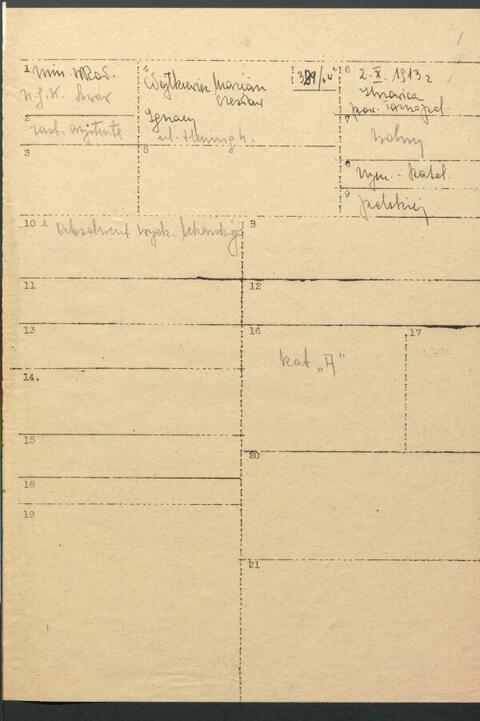 1 Min. WRoO.
U.J.K. Lwów
2
zast. asystenta
3
4
Wojtkiewicz Marian
Czesław
Ignacy
5
389/„W”
6
2. X. 1913 r
pow. Tarnopol
7
wolny
8
rzym. - katol.
9
polskiej
10 A Absolwent wydz. lekarskiego
B
11
12
13
16
kat „A”
17
14.
15
20
18
19
21